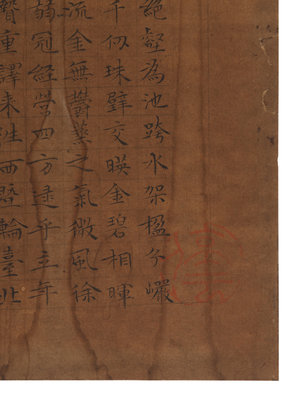 絕壑為池跨水架楹分巖
千仞珠璧交暎金碧相暉
流金無鬱蒸之氣微風徐
弱冠經營四方逮乎立年
贄重譯来西暨輪臺北